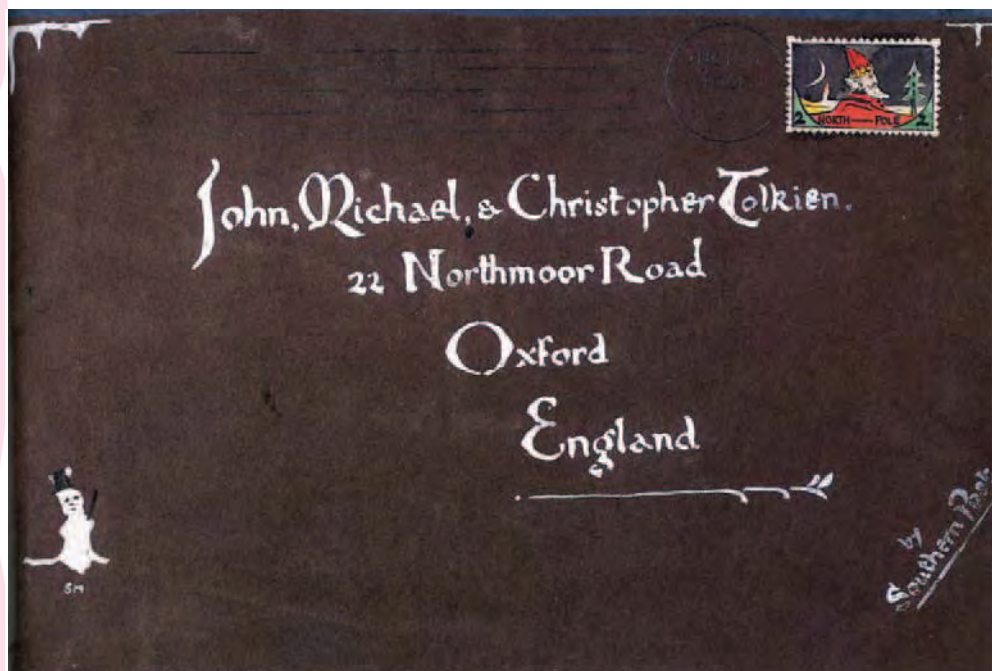 2 NORTH — POLE 2
John, Michael, & Christopher Tolkien.
22 Northmoor Road
Oxford
England
by
Southern Post
SM